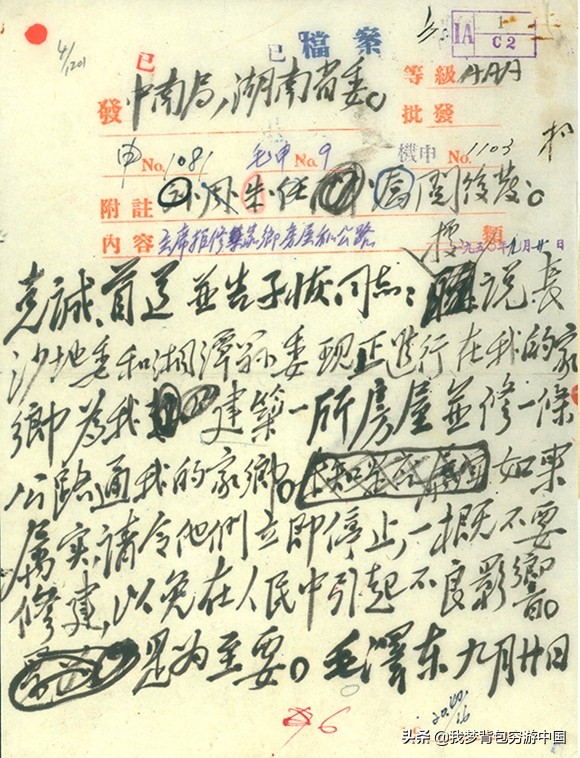 4/1201
1
IA C2
已 已 檔案
等級 AAA
發 中南局,湖南省委。
批發
申 No. 1081 毛申 No. 9 機申 No. 1103
附註 周 朱 任 閱後發。
內容 主席拒修築家鄉房屋和公路
類 一九五〇年九月廿日
克誠、首道並告子恢同志:據說長
沙地委和湘潭縣委現正進行在我的家
鄉為我建築一所房屋並修一條
公路通我的家鄉。如果
屬實,請令他們立即停止,一概不要
修建,以免在人民中引起不良影響。
是為至要。毛澤東 九月廿日
6
头条 @我梦背包穷游中国